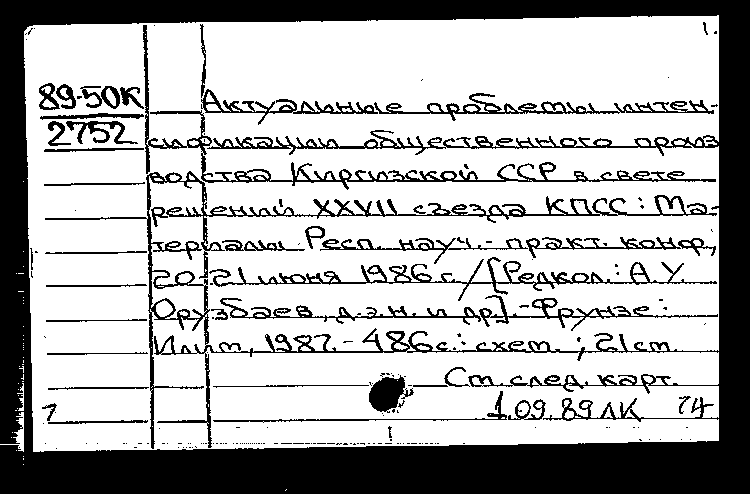 1.
89-50К
2752
Актуальные проблемы интен-
сификации общественного произ
водства Киргизской ССР в свете
решений XXVII съезда КПСС: Ма-
териалы Респ. науч.- практ. конф.,
20-21 июня 1986 г. / [Редкол.: А.У.
Орузбаев, д.э.н. и др]. - Фрунзе:
Илим, 1987. - 486 с.: схем. ; 21 см.
См. след. карт.
1.09.89 ЛК 74